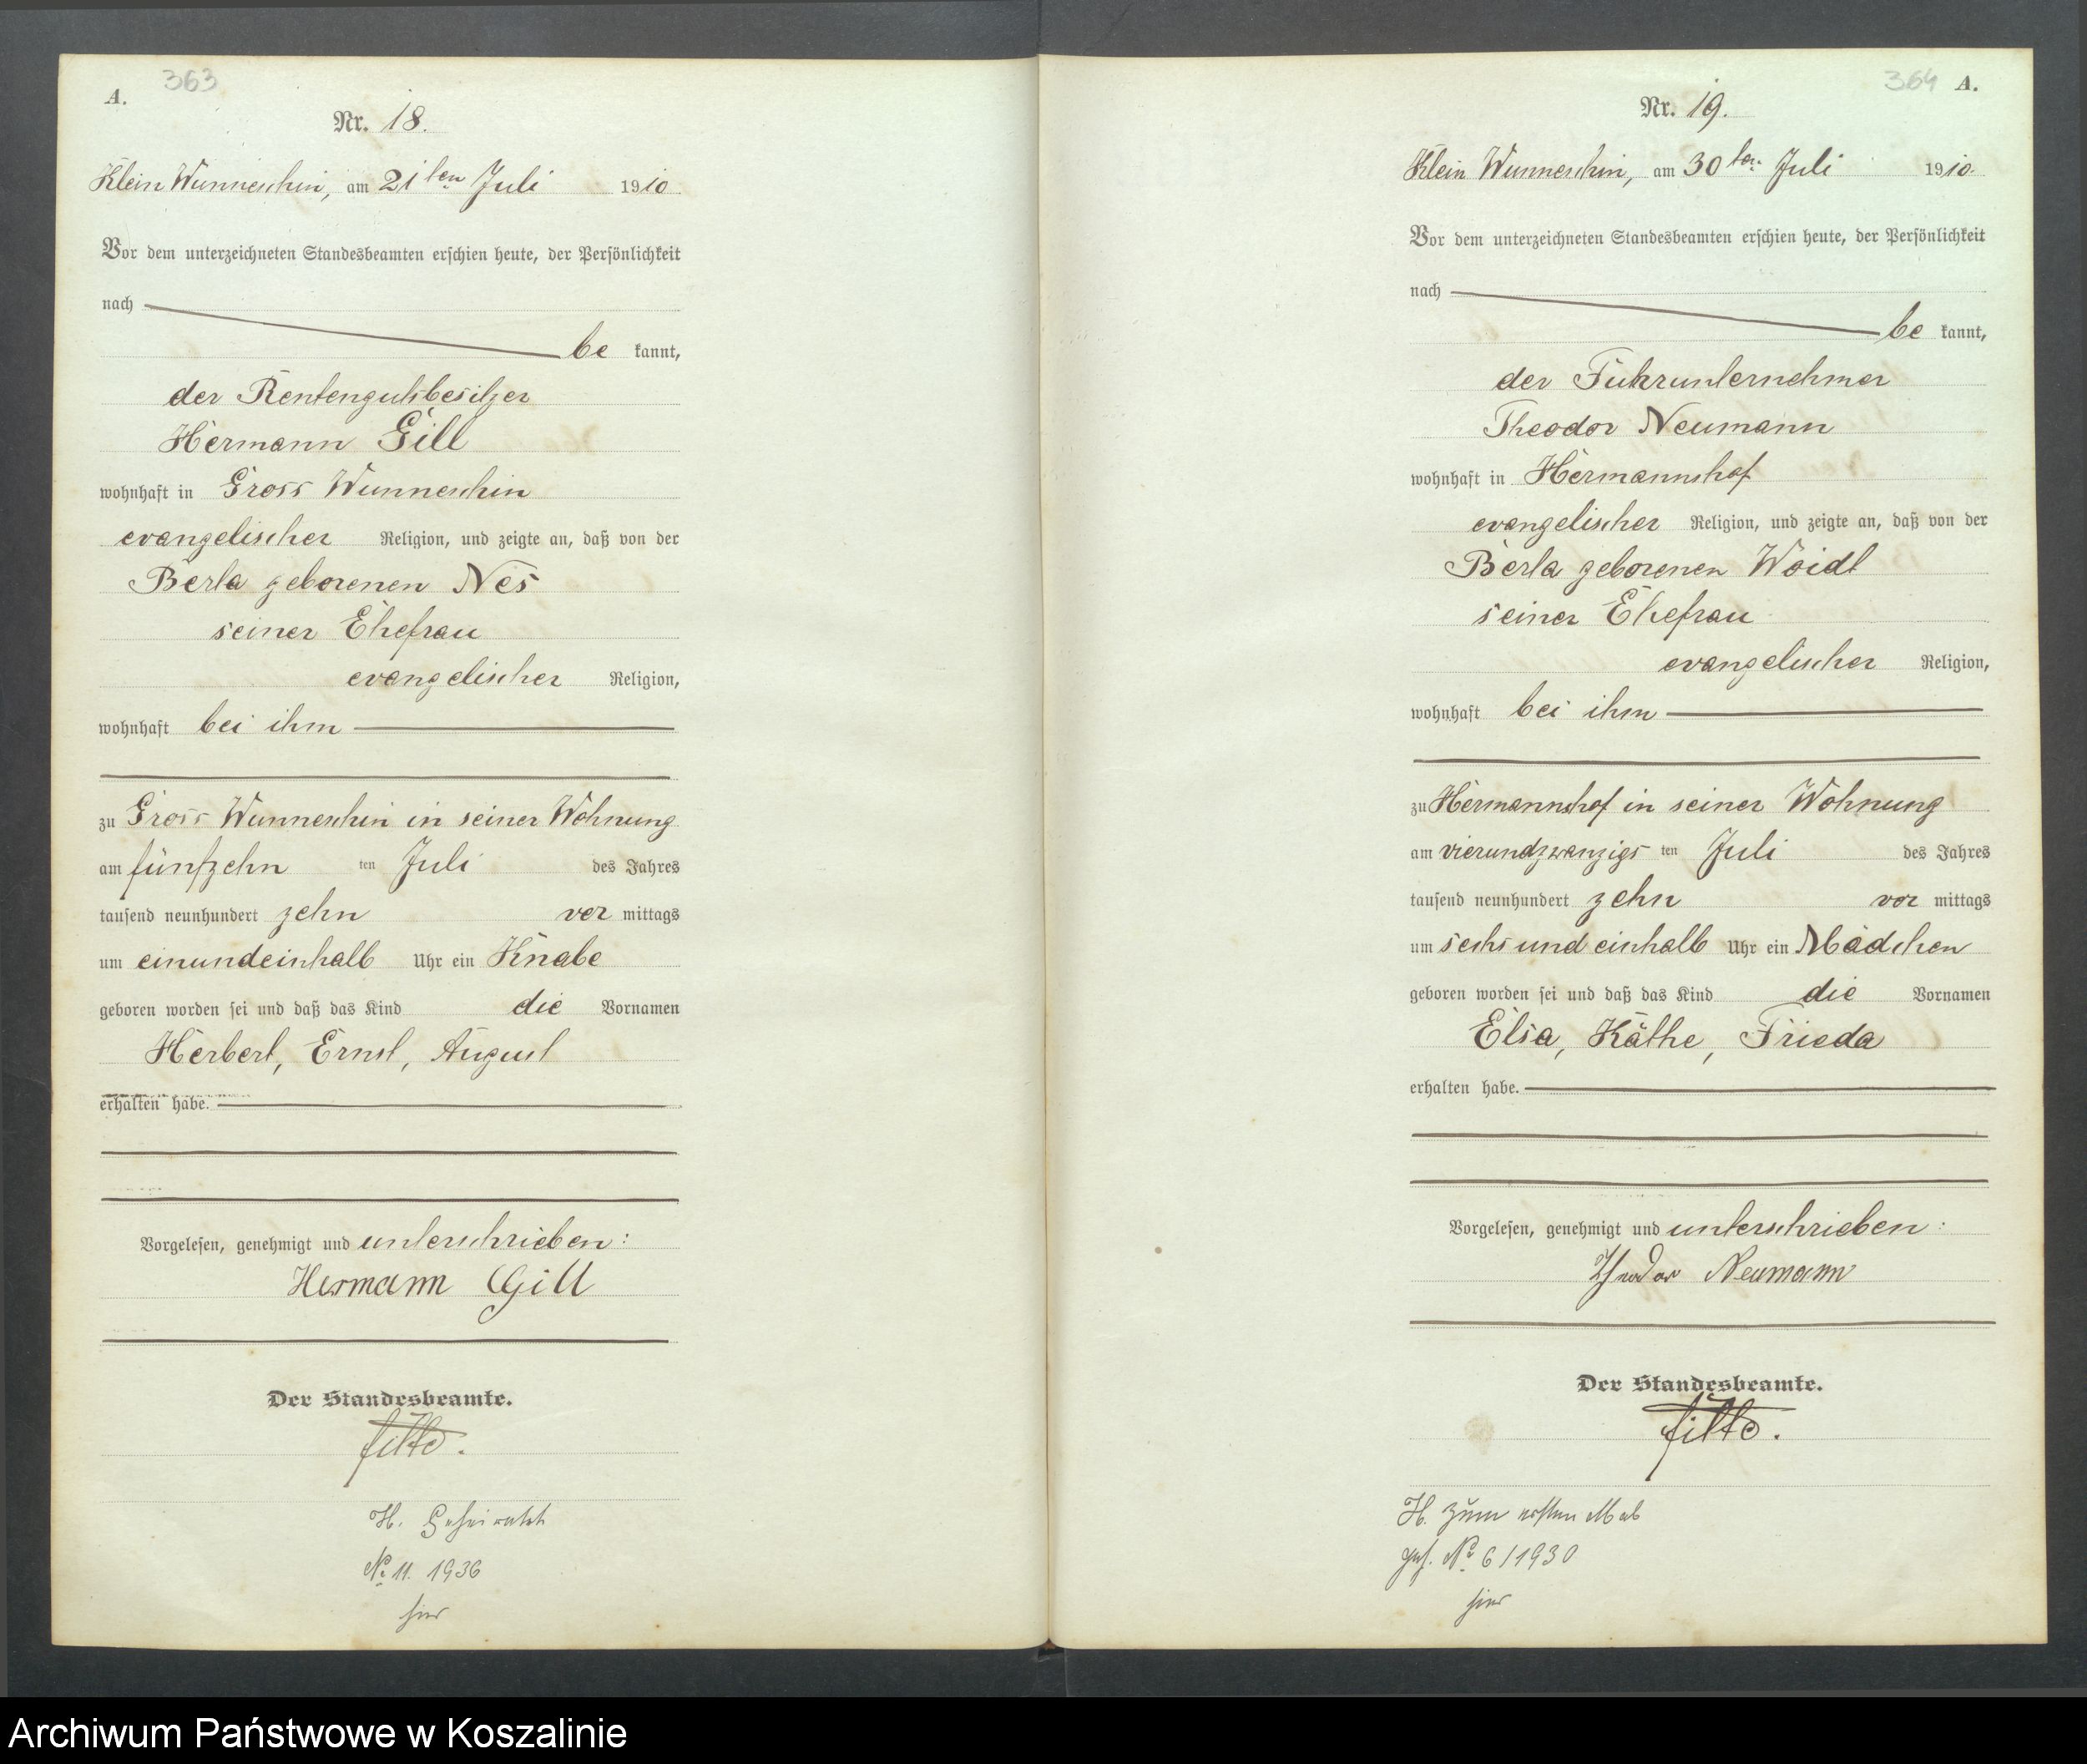 A.
363
Nr. 18.
Klein Wunneschin, am 21ten Juli 1910
Vor dem unterzeichneten Standesbeamten erschien heute, der Persönlichkeit
nach
be kannt,
der Rentengutsbesitzer
Hermann Gill
wohnhaft in Gross Wunneschin
evangelischer Religion, und zeigte an, daß von der
Berta geborenen Nes
seiner Ehefrau
evangelischer Religion,
wohnhaft bei ihm
zu Gross Wunneschin in seiner Wohnung
am fünfzehn ten Juli des Jahres
tausend neunhundert zehn vor mittags
um einundeinhalb Uhr ein Knabe
geboren worden sei und daß das Kind die Vornamen
Herbert, Ernst, August
erhalten habe.
Vorgelesen, genehmigt und unterschrieben:
Hermann Gill
Der Standesbeamte.
H. Geheiratet
No 11. 1936
hier
364 A.
Nr. 19.
Klein Wunneschin, am 30ten Juli 1910.
Vor dem unterzeichneten Standesbeamten erschien heute, der Persönlichkeit
nach
be kannt,
der Fuhrunternehmer
Theodor Neumann
wohnhaft in Hermannshof
evangelischer Religion, und zeigte an, daß von der
Berta geborenen Woidt
seiner Ehefrau
evangelischer Religion,
wohnhaft bei ihm
zu Hermannshof in seiner Wohnung
am vierundzwanzigs ten Juli des Jahres
tausend neunhundert zehn vor mittags
um sechs und einhalb Uhr ein Mädchen
geboren worden sei und daß das Kind die Vornamen
Elsa, Käthe, Frieda
erhalten habe.
Vorgelesen, genehmigt und unterschrieben:
Theodor Neumann
Der Standesbeamte.
H. zum ersten Mal
geh. No 6/1930
hier
Archiwum Państwowe w Koszalinie